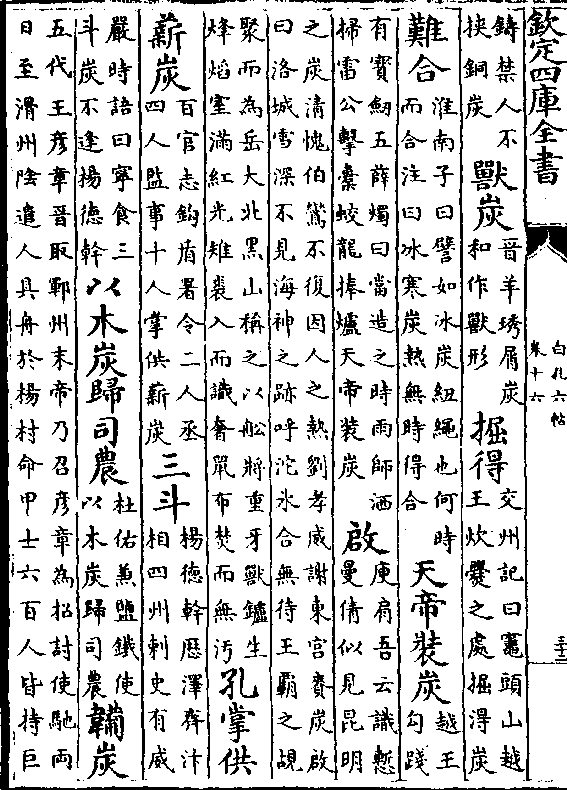 欽定四庫全書
鑄禁人不
挾銅炭
獸炭
晉羊琇屑炭
和作獸形
掘得
交州記曰竈頭山越
王炊爨之處掘得炭
難合
淮南子曰譬如冰炭紐繩也何時
而合注曰冰寒炭熱無時得合
天帝裝炭
越王
勾踐
有寶劒五薛燭曰當造之時雨師洒
掃雷公擊橐蛟龍捧爐天帝裝炭
啟
庾肩吾云識慙
曼倩似見昆明
之炭清愧伯鸞不復因人之熱劉孝威謝東宮賚炭啟
曰洛城雪深不見海神之跡呼沱氷合無待王霸之覘
聚而為岳大北黒山稱之以舩將重牙獸鑪生
烽熖室滿紅光雉裘入而識奢單布焚而無汚
孔掌供
薪炭
百官志鈎盾署令二人丞
四人監事十人掌供薪炭
三斗
楊德幹歴澤齊汴
相四州刺史有威
嚴時語曰寧食三
斗炭不逢揚德幹
以木炭歸司農
杜佑兼鹽鐵使
以木炭歸司農
韛炭
五代王彦章晉取鄆州末帝乃召彦章為招討使馳兩
日至滑州陰遣人具舟於楊村命甲士六百人皆持巨
白孔六帖
卷十六